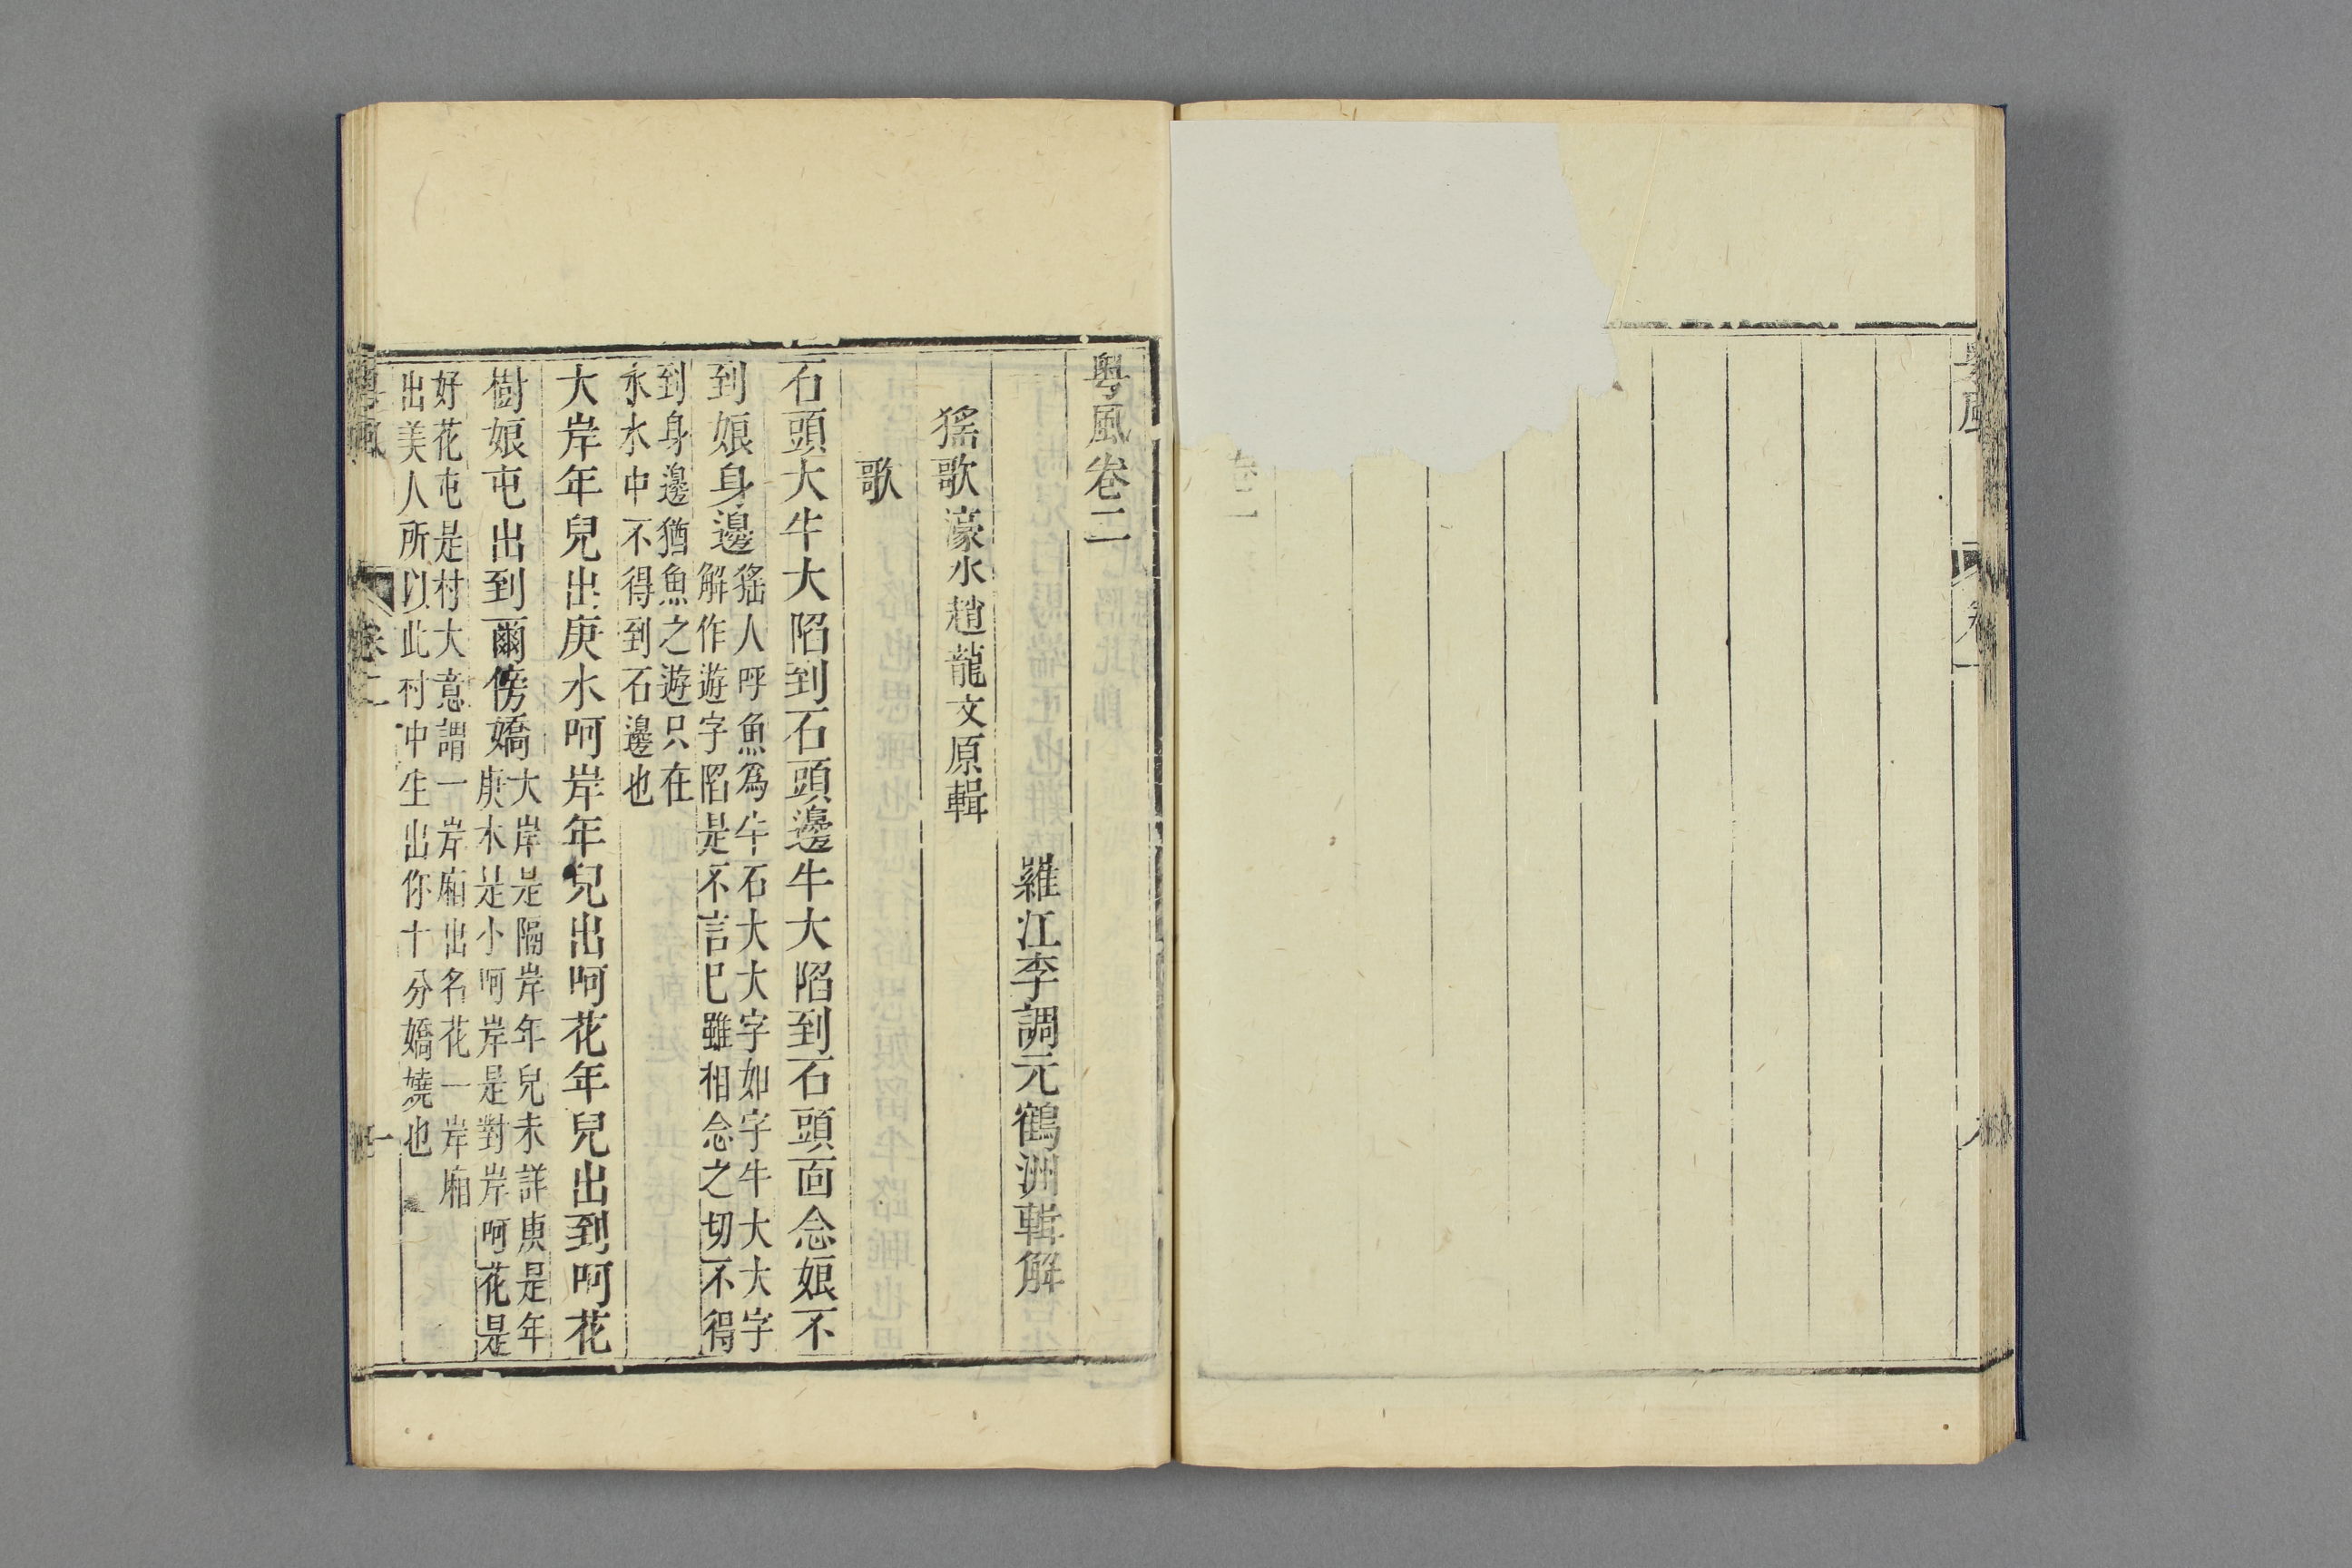 粤風卷二
羅江李調元鶴洲輯解
猺歌濠水趙龍文原輯
歌
石頭大牛大陷到石頭邊牛大陷到石頭面念娘不
到娘身邊
猺人呼魚為牛石大大字如字牛大大字
解作遊字陷是不言巳雖相念之切不得
到身邊猶魚之遊只在
水水中不得到石邊也
大岸年兒出庚水呵岸年兒出呵花年兒出到呵花
樹娘屯出到爾傍嬌
大岸是隔岸年兒未詳庚是年
庚水是小呵岸是對岸呵花是
好花屯是村大意謂一岸廂出名花一岸廂
出美人所以此村中生出你十分嬌嬈也
粤風
卷二
一